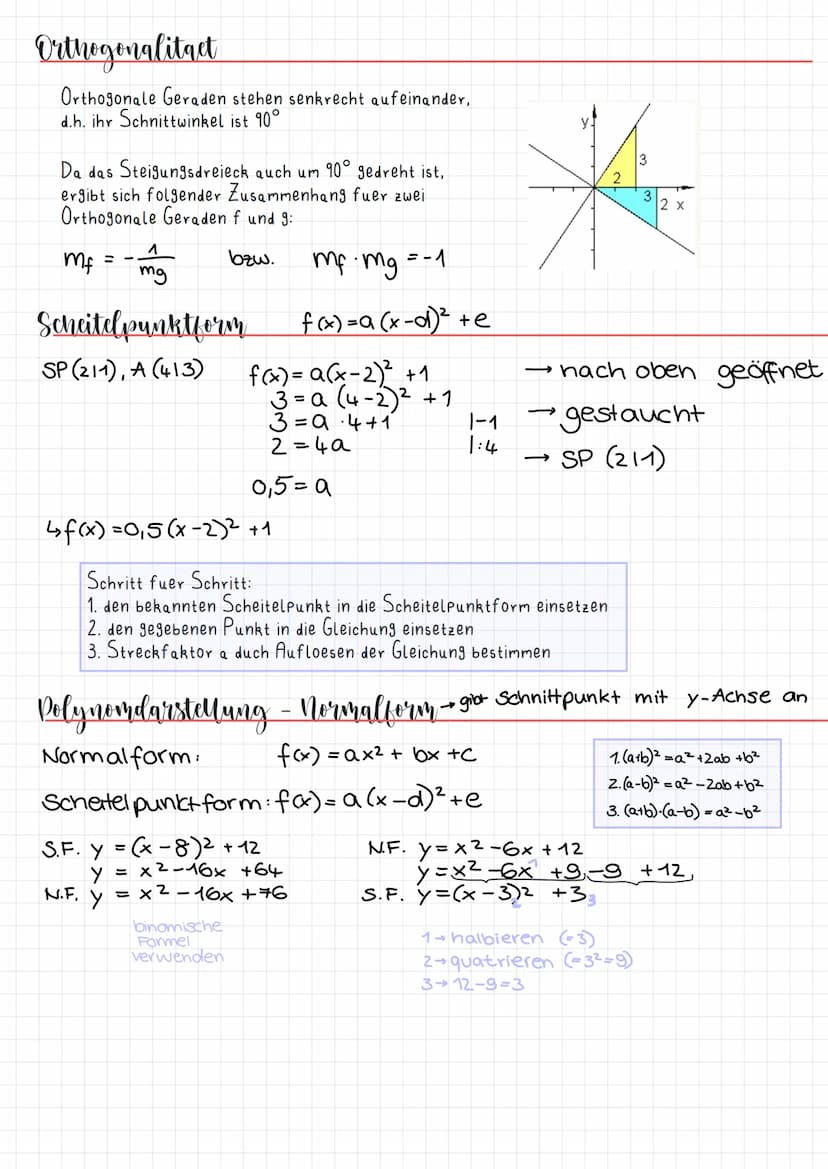 Orthogonalitaet
Orthogonale Geraden stehen senkrecht aufeinander,
d.h. ihr Schnittwinkel ist 90°
Da das Steigungsdreieck auch um 90° gedreht ist,
ergibt sich folgender Zusammenhang fuer zwei
Orthogonale Geraden f und g:
y
3
2
3
2 x
mf = -1/mg bzw. mf · mg = -1
Scheitelpunktform f(x) = a(x-d)² + e
SP(2|1), A(4|3)
f(x) = a(x-2)² + 1
3 = a (4-2)² + 1
3 = a · 4 + 1 |-1
2 = 4a |:4
0,5 = a
→ nach oben geöffnet
→ gestaucht
→ SP (2|1)
↳ f(x) = 0,5(x-2)² + 1
Schritt fuer Schritt:
1. den bekannten Scheitelpunkt in die Scheitelpunktform einsetzen
2. den gegebenen Punkt in die Gleichung einsetzen
3. Streckfaktor a duch Aufloesen der Gleichung bestimmen
Polynomdarstellung - Normalform → gibt Schnittpunkt mit y-Achse an
Normalform: f(x) = ax² + bx + c
Scheitelpunktform: f(x) = a(x-d)² + e
1. (a+b)² = a² + 2ab + b²
2. (a-b)² = a² - 2ab + b²
3. (a+b)·(a-b) = a² - b²
S.F. y = (x-8)² + 12
y = x² - 16x + 64
N.F. y = x² - 16x + 76
binomische
Formel
verwenden
N.F. y = x² - 6x + 12
y = x² - 6x¹ + 9 - 9 + 12
S.F. y = (x-3)² + 3
2 3
1 → halbieren (=3)
2 → quatrieren (=3²=9)
3 → 12-9=3